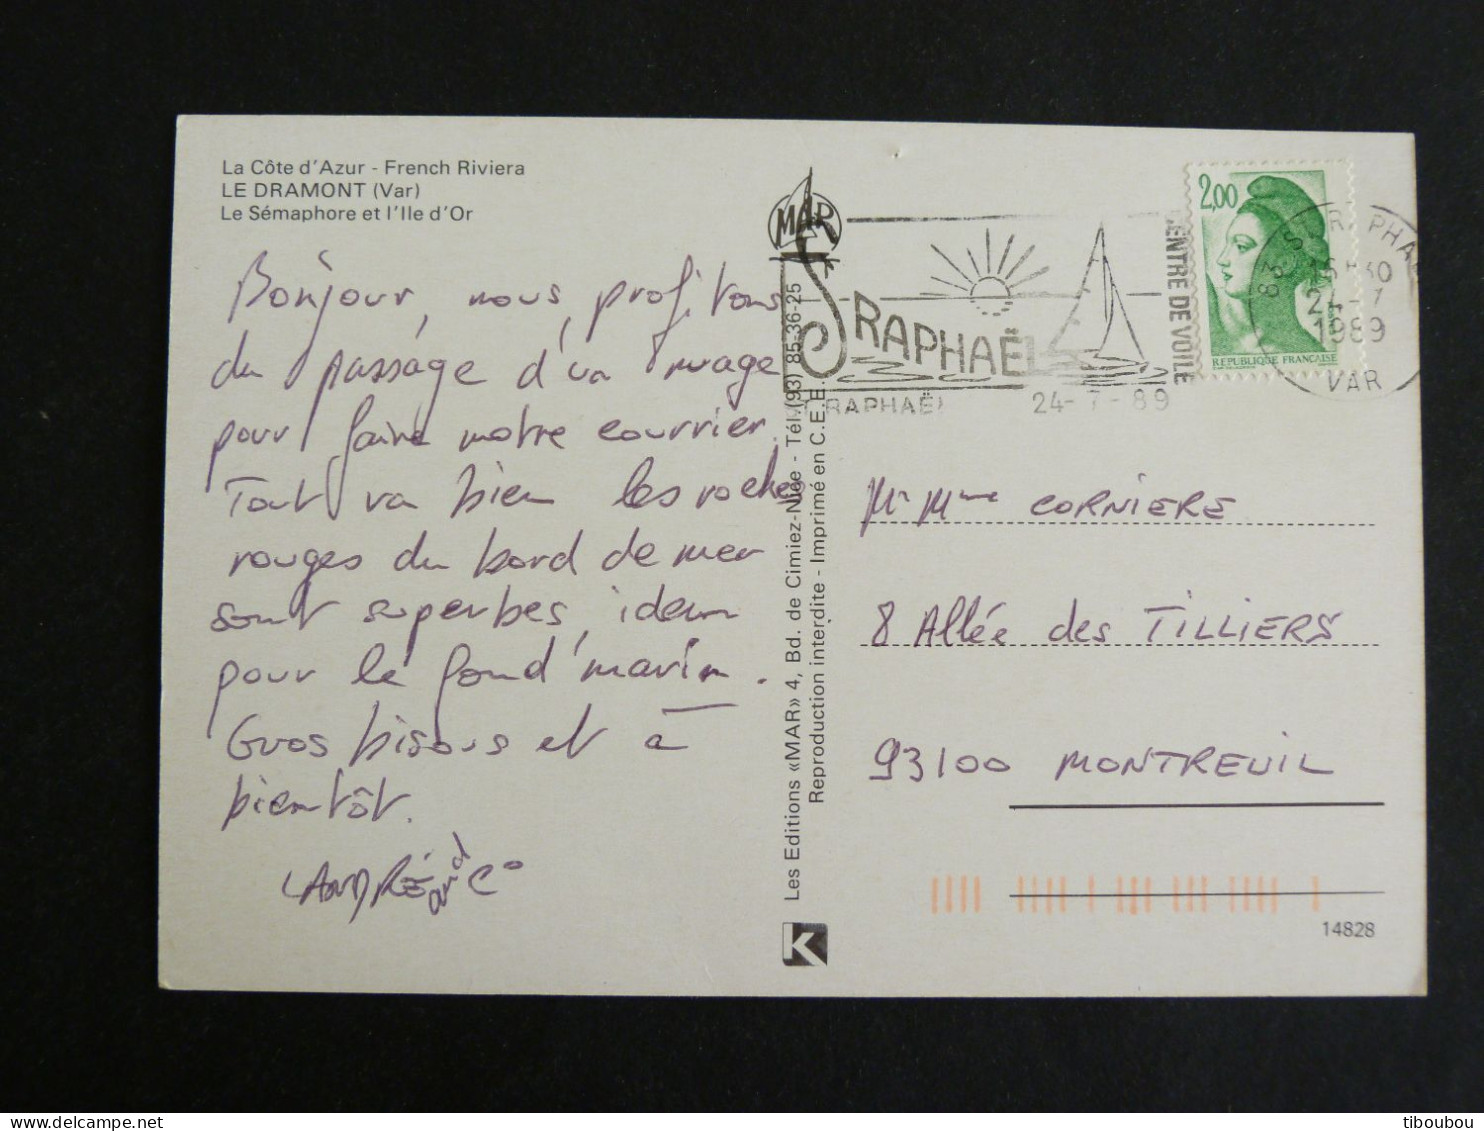 La Côte d'Azur - French Riviera
LE DRAMONT (Var)
Le Sémaphore et l'Ile d'Or
Bonjour, nous profitons
du passage d'un nuage
pour faire notre courrier.
Tout va bien les roches
rouges du bord de mer
sont superbes, idem
pour le fond marin.
Gros bisous et à
bientôt.
ANDRÉ and Co
MAR
Les Editions «MAR» 4, Bd. de Cimiez-Nice - Tél. (93) 85-36-25
Reproduction interdite - Imprimé en C.E.E.
K
ST RAPHAËL
CENTRE DE VOILE
ST RAPHAËL 24-7-89
2,00
REPUBLIQUE FRANÇAISE
83 ST. RAPHAEL
24-7
1989
VAR
Mr Mme CORNIERE
8 Allée des TILLIERS
93100 MONTREUIL
14828
tiboubou